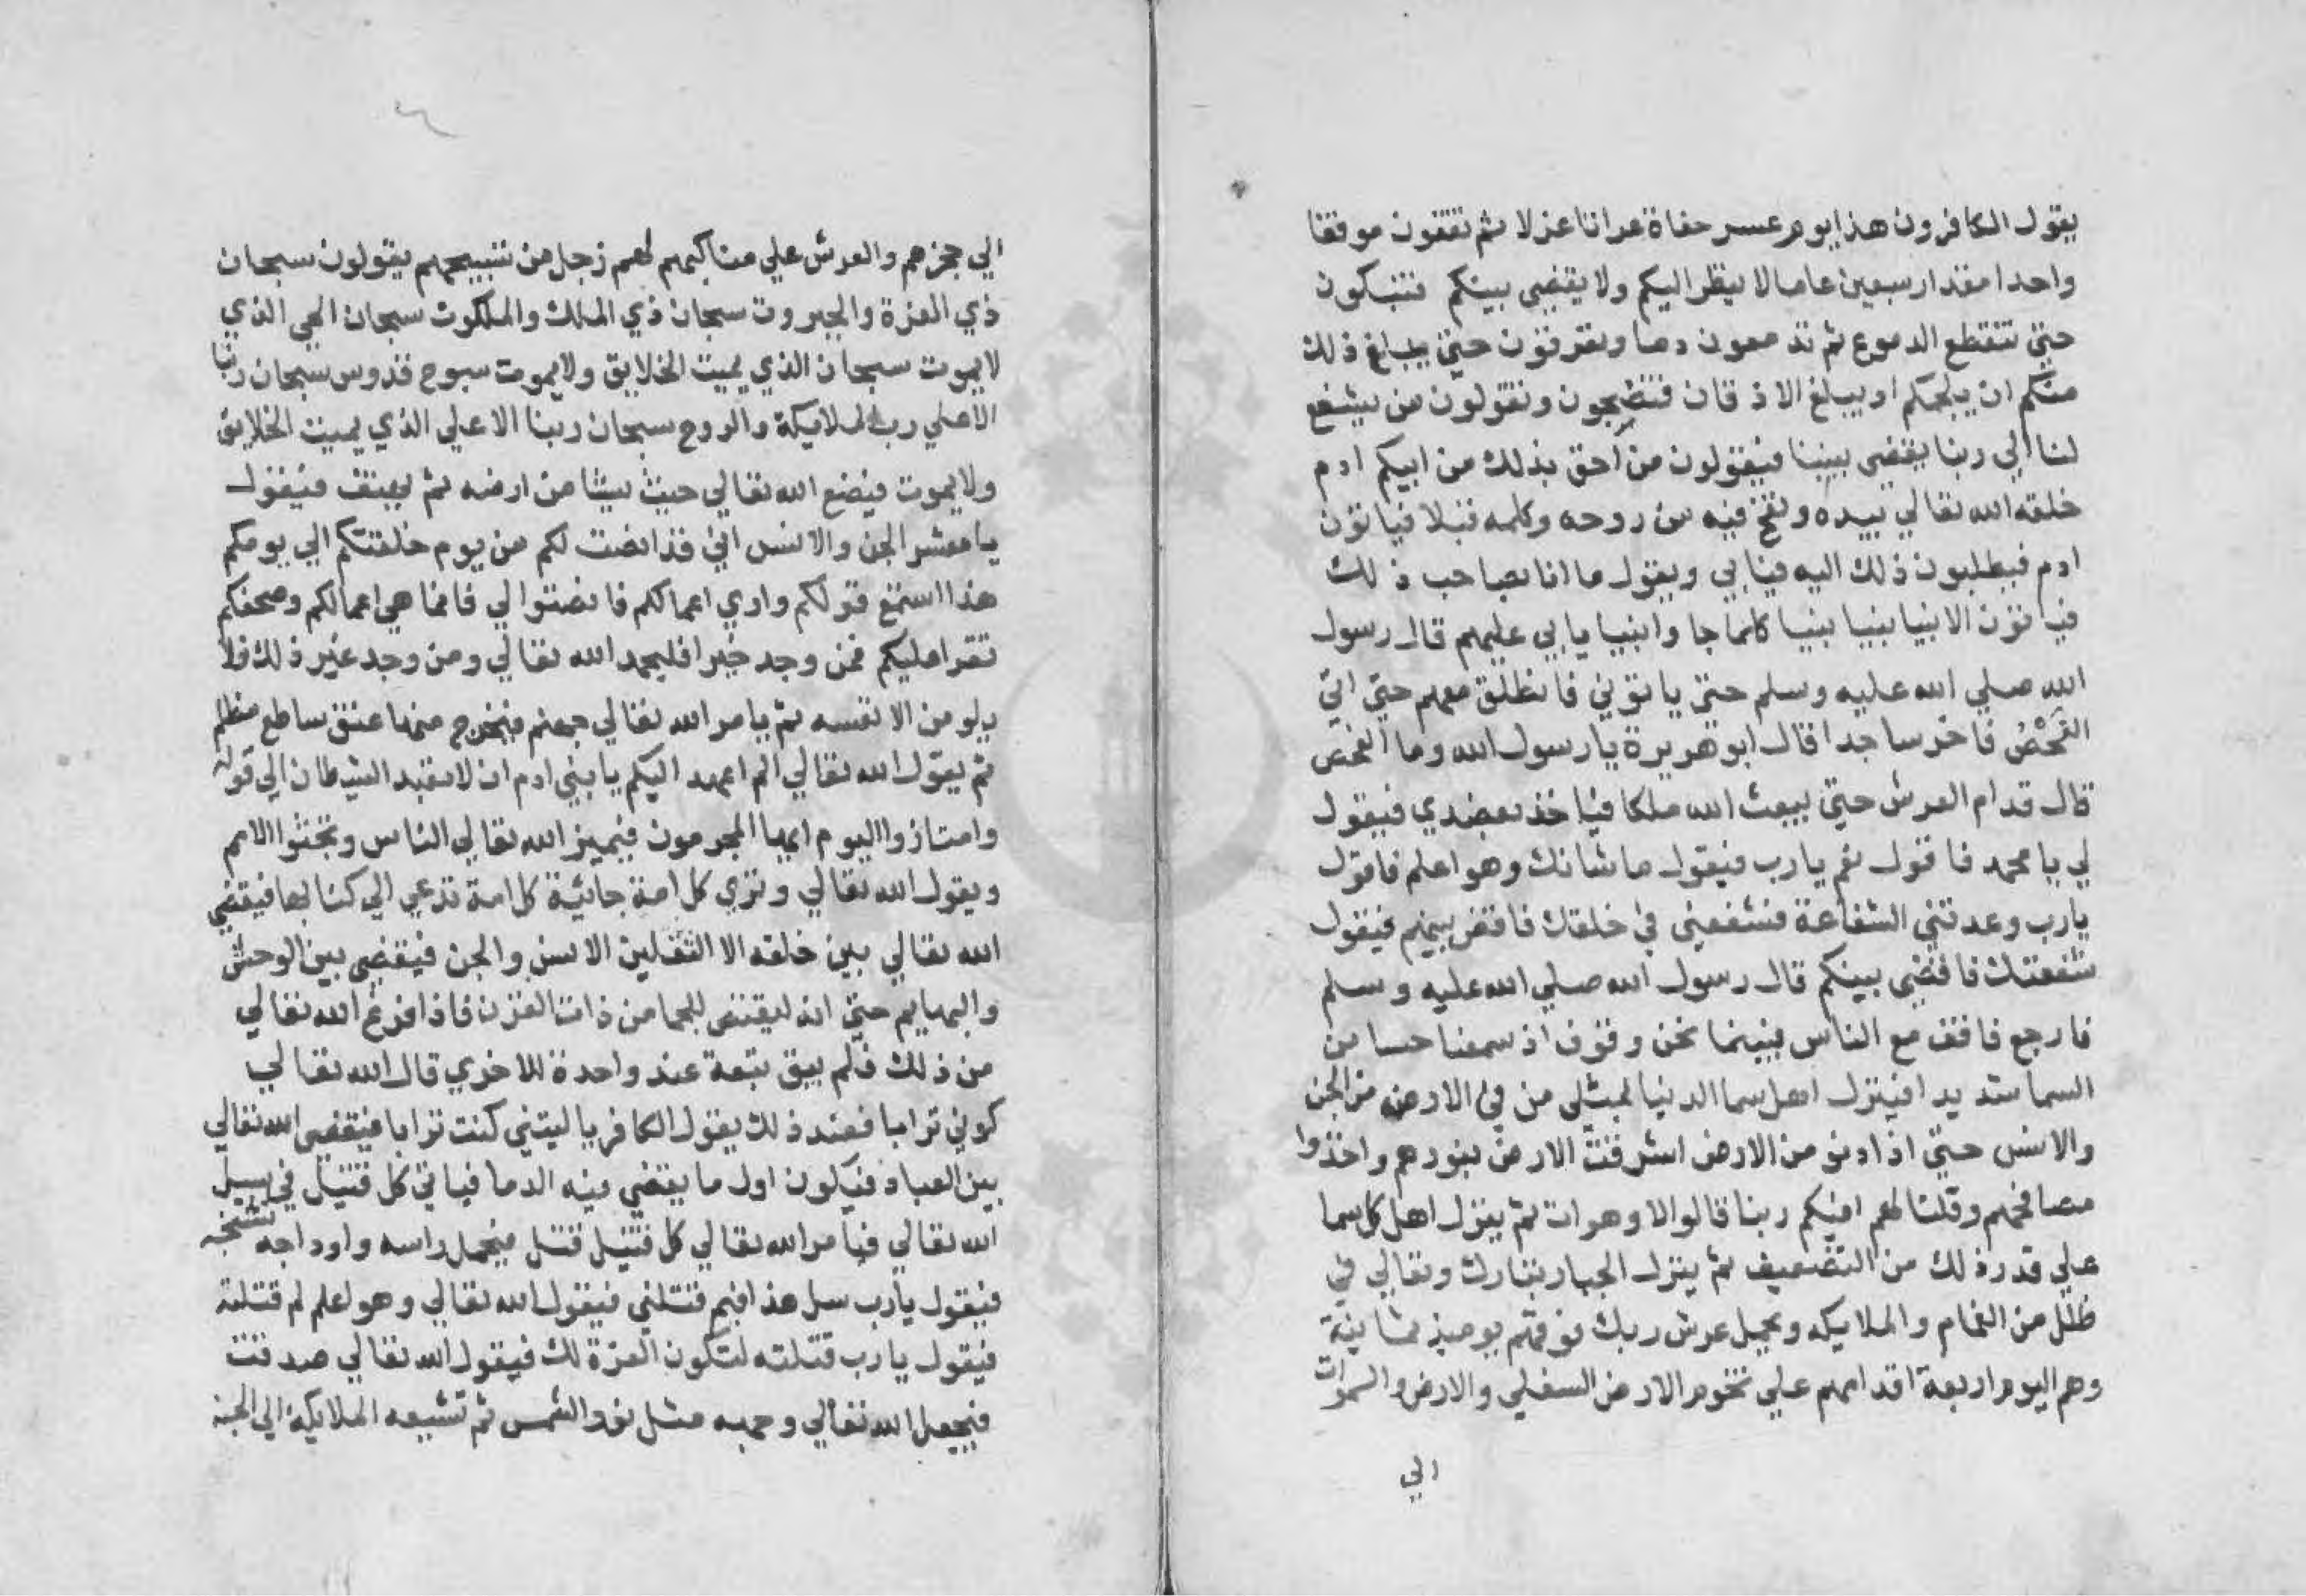 يقول الكافرون هذا يوم عسر حفاة عراتا عزلا ثم تقفون موقفا
واحدا مقدار سبعين عاما لا ينظر اليكم ولا يقضي بينكم فتبكون
حتي تنقطع الدموع ثم تدمعون دما وتعرقون حتي يبلغ ذلك
منكم ان يلجمكم او يبلغ الاذقان فتضجون وتقولون من يشفع
لنا الي ربنا يقضي بيننا فيقولون من احق بذلك من ابيكم ادم
خلقه الله تعالي بيده ونفخ فيه من روحه وكلمه قبلا فياتون
ادم فيطلبون ذلك اليه فيابي ويقول ما انا بصاحب ذلك
فياتون الانبيا نبيا نبيا كلما جاوا نبيا يابي عليهم قال رسول
الله صلي الله عليه وسلم حتي ياتوني فانطلق معهم حتي اتي
الفحص فاخر ساجدا قال ابو هريرة يا رسول الله وما الفحص
قال قدام العرش حتي يبعث الله ملكا فياخذ بعضدي فيقول
لي يا محمد فاقول نعم يارب فيقول ما شانك وهو اعلم فاقول
يارب وعدتني الشفاعة فشفعني في خلقك فاقض بينهم فيقول
شفعتك فاقضي بينكم قال رسول الله صلي الله عليه وسلم
فارجع فاقف مع الناس فبينما نحن وقوف اذ سمعنا حسا من
السما شديدا فينزل اهل سما الدنيا بمثلي من في الارض من الجن
والانس حتي اذا دنو من الارض اشرقت الارض بنورهم واخذوا
مصافحهم وقلنا لهم افيكم ربنا قالوا لا وهو ات ثم ينزل اهل كل سما
علي قدر ذلك من التضعيف ثم ينزل الجبار تبارك وتعالي في
ظلل من الغمام والملايكه ويحمل عرش ربك فوقهم يوميذ ثمانية
وهم اليوم اربعة اقدامهم علي تخوم الارض السفلي والارض والسموات
الي
الي حجزهم والعرش علي مناكبهم لهم زجل من تسبيحهم يقولون سبحان
ذي العزة والجبروت سبحان ذي الملك والملكوت سبحان الحي الذي
لا يموت سبحان الذي يميت الخلايق ولا يموت سبوح قدوس سبحان ربنا
الاعلي رب الملايكة والروح سبحان ربنا الاعلي الذي يميت الخلايق
ولا يموت فيضع الله تعالي حيث يشا من ارضه ثم يهتف فيقول
يا معشر الجن والانس اني قد انصت لكم من يوم خلقتكم الي يومكم
هذا استمع قولكم واري اعمالكم فانصتوا لي فانما هي اعمالكم وصحفكم
تقرا عليكم فمن وجد خيرا فليحمد الله تعالي ومن وجد غير ذلك فلا
يلومن الا نفسه ثم يامر الله تعالي جهنم فيخرج منها عنق ساطع مظلم
ثم يقول الله تعالي الم اعهد اليكم يا بني ادم ان لا تعبد الشيطان الي قوله
وامتازوا اليوم ايها المجرمون فيميز الله تعالي الناس وتجثوا الامم
ويقول الله تعالي وتري كل امة جاثية كل امة تدعي الي كتابها فيقضي
الله تعالي بين خلقه الا الثقلين الانس والجن فيقضي بين الوحش
والبهايم حتي انه ليقتص للجما من ذات القرن فاذا فرغ الله تعالي
من ذلك فلم يبق تبعة عند واحدة للاخري قال الله تعالي
كوني ترابا فعند ذلك يقول الكافر يا ليتني كنت ترابا فيقضي الله تعالي
بين العباد فيكون اول ما يقضي فيه الدما فياتي كل قتيل في سبيل
الله تعالي فيامر الله تعالي كل قتيل قتل فيحمل راسه واوداجه تشخب
فيقول يا رب سل هذا فيم قتلني فيقول الله تعالي وهو اعلم لم قتلته
فيقول يا رب قتلته لتكون العزة لك فيقول الله تعالي صدقت
فيجعل الله تعالي وجهه مثل نور الشمس ثم تشيعه الملايكة الي الجنة